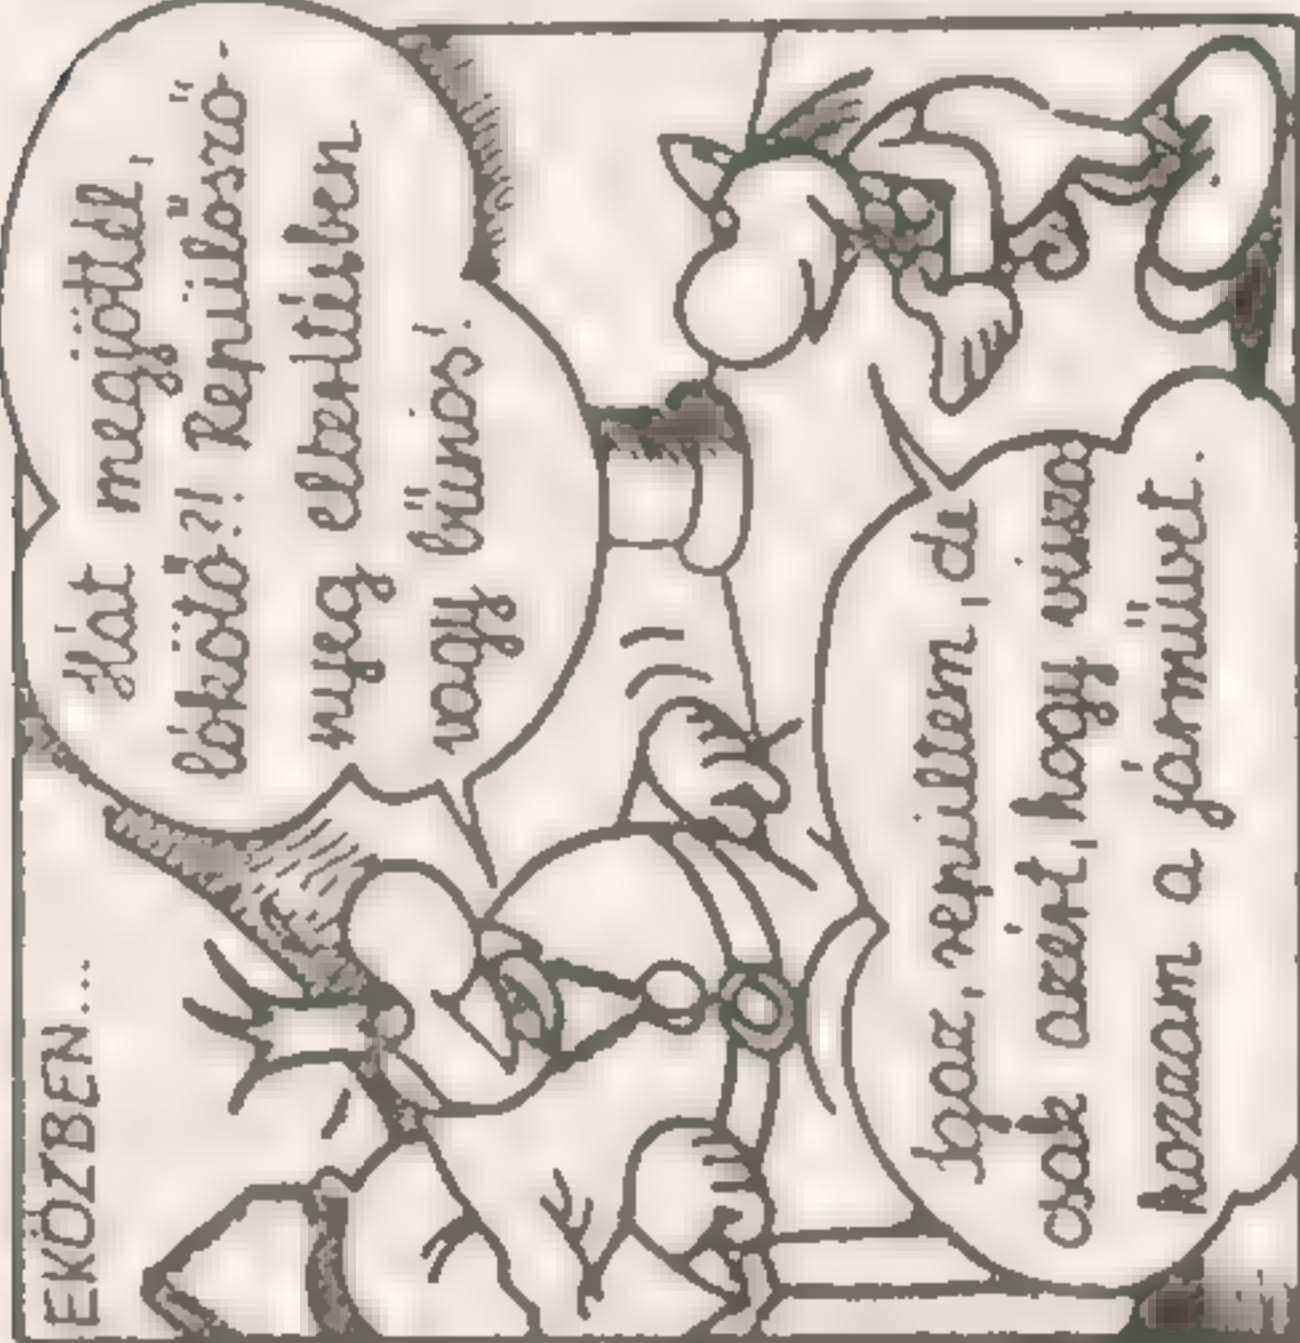 EKÖZBEN...
Hát megjöttél,
lókötő?! Repülősző
nyeg eltérítésben
vagy bűnös!
Igaz, repültem, de
csak azért, hogy vissza
hozzam a járművet.